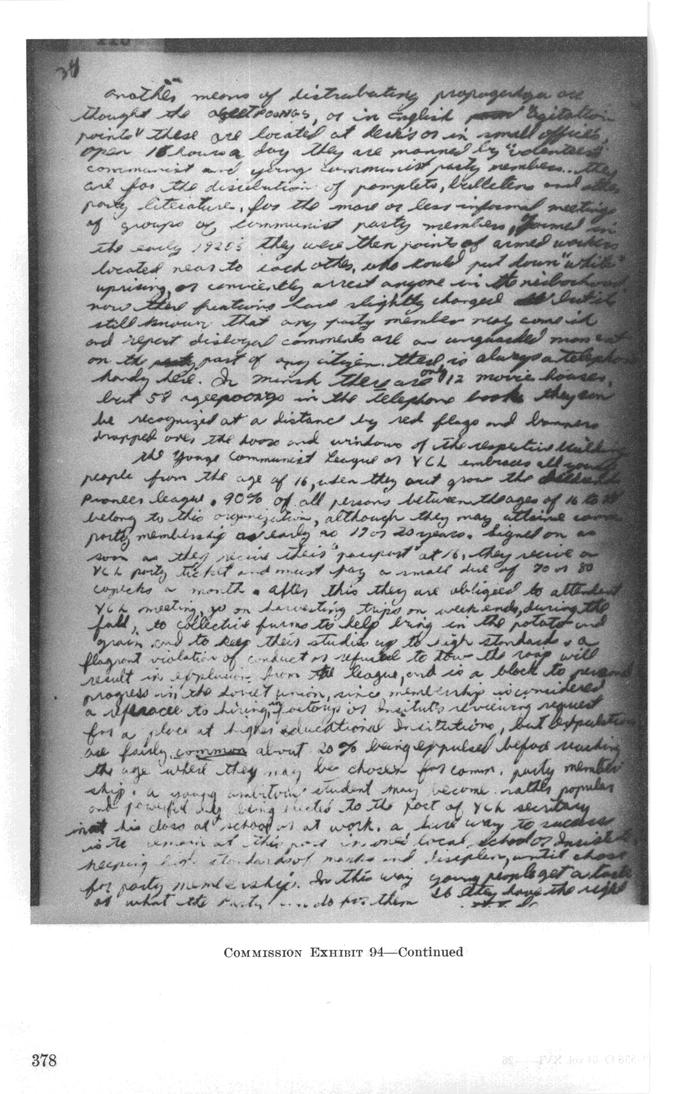 34
another means of distrubuting propogandza are
thought the AGEETPOONGS, or in English "agitation
points" these are located at desks or in small offices,
open 16 hours a day they are manned by "volenteers"
communist and young communist party members. they
are for the disribution of pamplets, bulletens and other
party literature, for the more or less informal meetings
of groups of communist party members, Formed in
the early 1920's they were then points of armed workers
located near to each other, who could put down "white"
uprising, or conviently arrest anyone in the neiborhood
now there functions have slightly changed but it's
still known that any party member may come in
and report disloyal comments are an unguarded moment
on the part of any citizen. there is always a telephone
handy here. In minsk there are only 12 movie houses,
but 58 ageepoongs in the telephone book they can
be recognized at a distance by red flags and banners
drapped over the doors and windows of the respective building
the Young Communist League or YCL embraces all young
people from the age of 16, when they out grow the
Pioneer league, 90% of all persons between the ages of 16 to
belong to this organization, although they may attaine comm
party membership as early as 19 or 20 years. signed on as
soon as they recive their "passport" at 16, they recive a
YCL party ticket and must pay a small due of 70 or 80
copecks a month. after this they are obliged to attend
YCL meeting, go on harvesting trips on weekends, during the
fall, to collective farms to help bring in the potato and
grain and to keep their studies up to high standards. a
flagrant violation of conduct or refusal to tow the rong will
result in expulsion from the league, and is a block to personal
progress in the soviet union, since membership is considered
a to hiring, factorys or reviewing request
for a place at higher educational Insititutions, but expulsions
are fairly common about 20% being expulsed before reaching
the age where they may be chosen for comm. party member
ship. a young ambitious student may become rather popular
and powerful by being elected to the post of YCL secretary
in his class at school or at work. a sure way to success
is to remain at this post in ones local school or
keeping high standards of marks and until chose
for party membership. In this way young people get a taste
of what the Party can do for them if they have the right
COMMISSION EXHIBIT 94—Continued
378